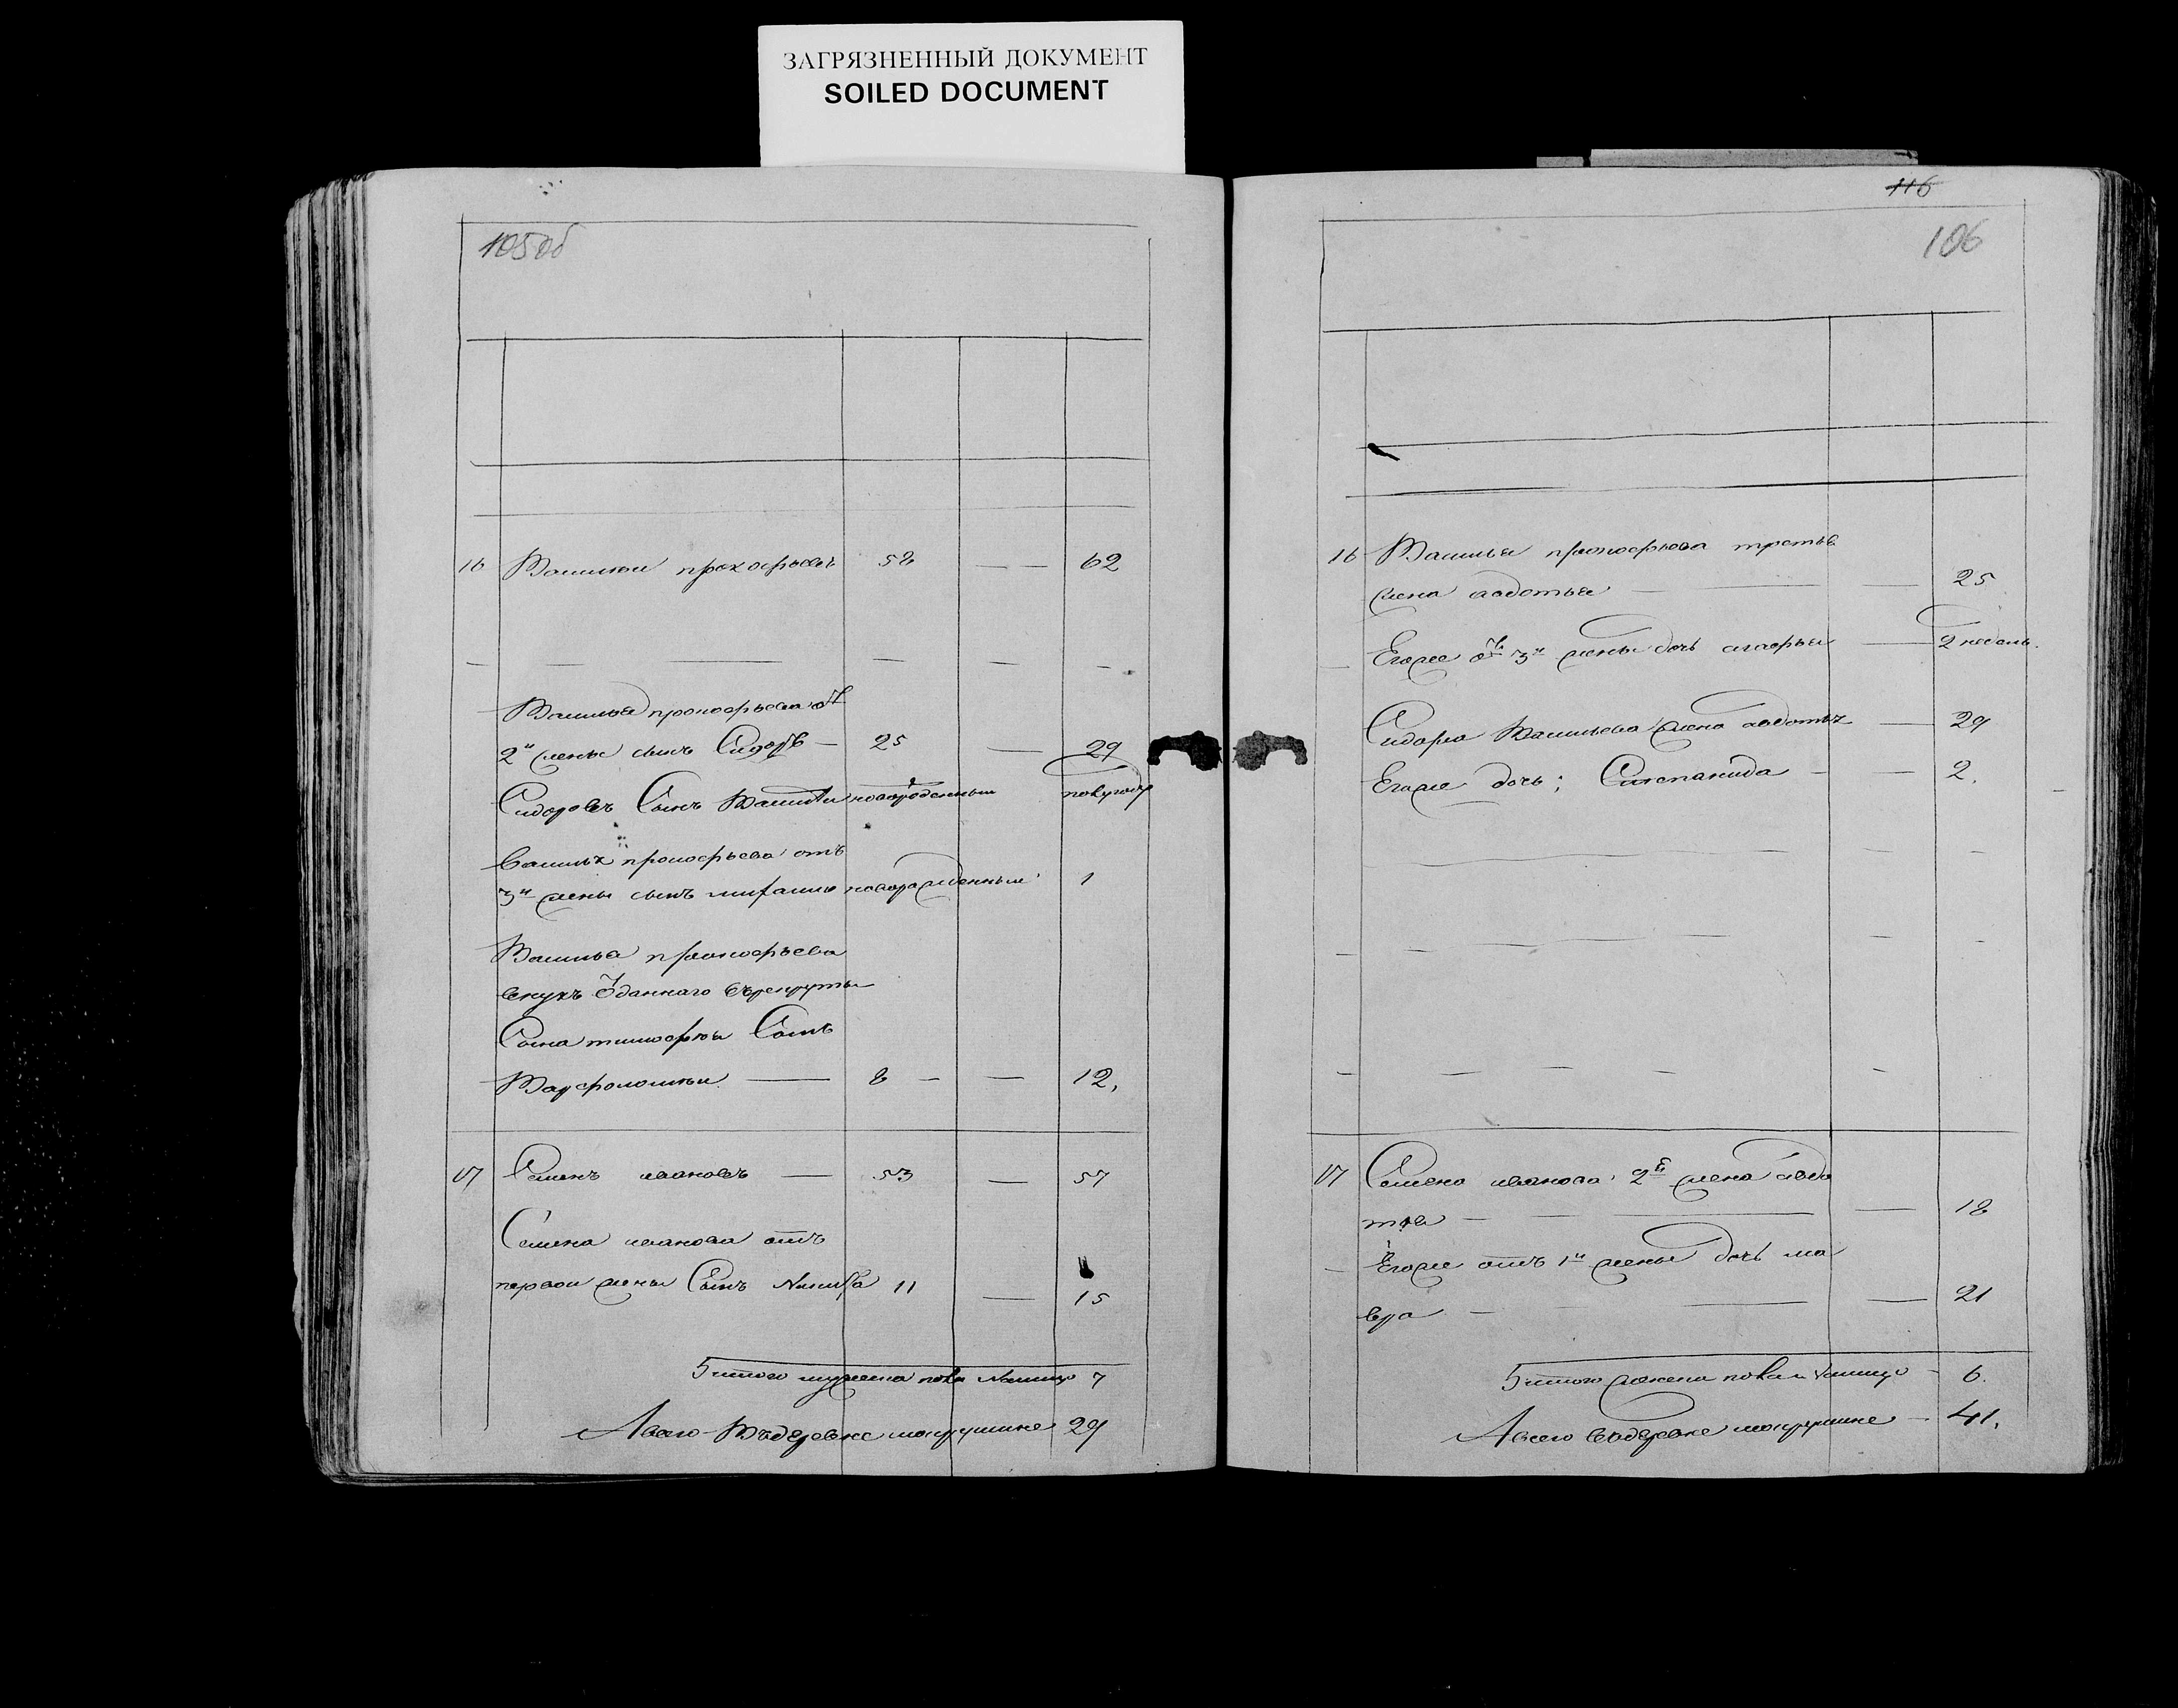 ЗАГРЯЗНЕННЫЙ ДОКУМЕНТ
SOILED DOCUMENT
105об
16 Василий прокофьевъ 58 — — 62
Василья прокофьева от
2й жены сынъ Сидоръ — 25 — 29
Сидоровъ Сынъ Василий новорожденный полугоду
Василья прокофьева отъ
3й жены сынъ новорожденный 1
Василья прокофьева
внукъ отданнаго въ рекруты
Сына тимофея Сынъ
Варфоломей — 8 — — 12.
17 Семенъ ивановъ — 53 — 57
Семена иванова отъ
первой жены Сынъ Никита 11 — 15
итого мужеска пола налицо 7
А всего въ деревне 29
116
106
16 Василья прокофьева третья
жена авдотья — — 25
Егоже от 3й жены дочь агафья — 2 недель.
Сидора Васильева жена авдотья — 29
Егоже дочь; Степанида — — 2.
17 Семена иванова 2я жена авдо
тья — — — 18
Егоже отъ 1й жены дочь ма
вра — — — 21
итого женска пола налицо — 6.
А всего въ деревне — 41.